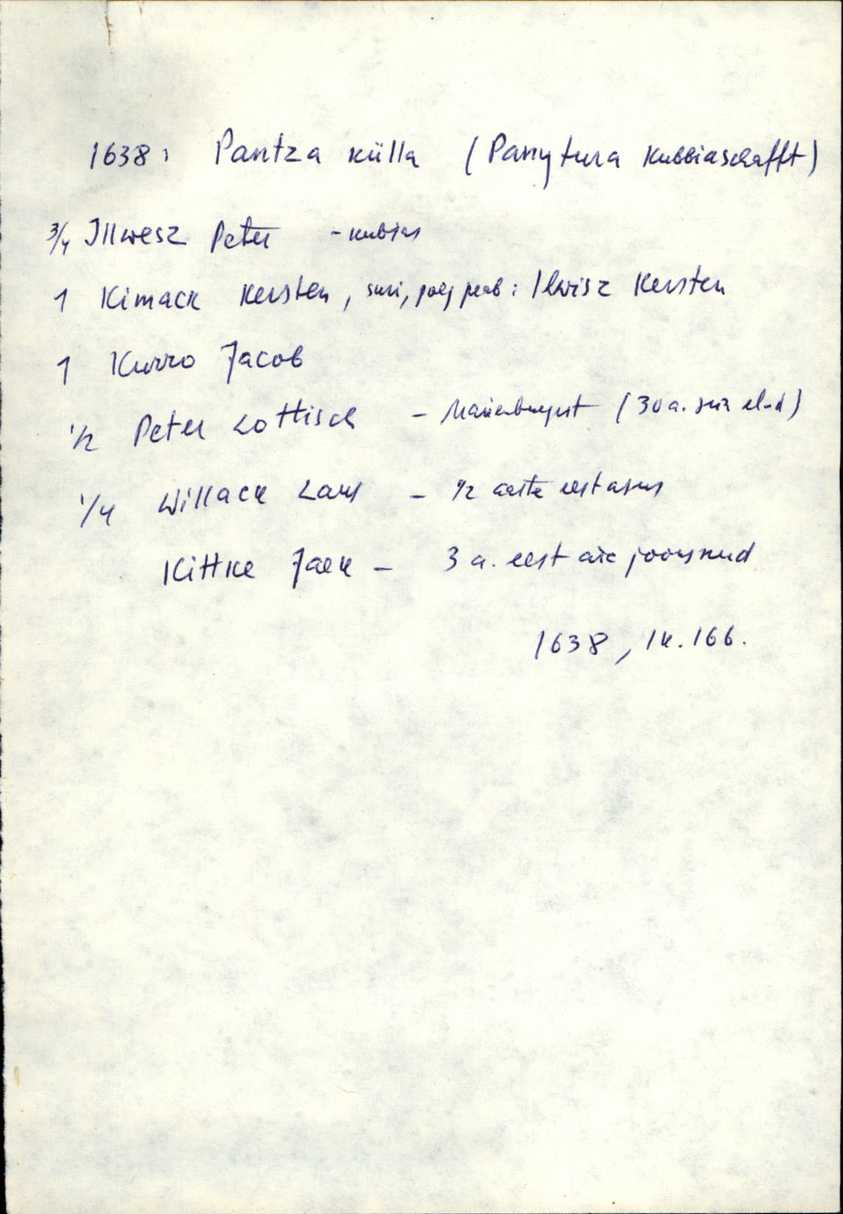 1638: Pantza külla (Panytura Kubbiaschafft)
3/4 Illwesz Peter - kubjas
1 Kimack Kersten, suri, poeg peab: Ilwisz Kersten
1 Kurro Jacob
1/2 Peter Lottisch - Marienburgist (30 a. siin elnd)
1/4 Willack Laus - 1/2 aasta eest asus
Kittke Jaek - 3 a. eest ära jooksnud
1638, lk. 166.